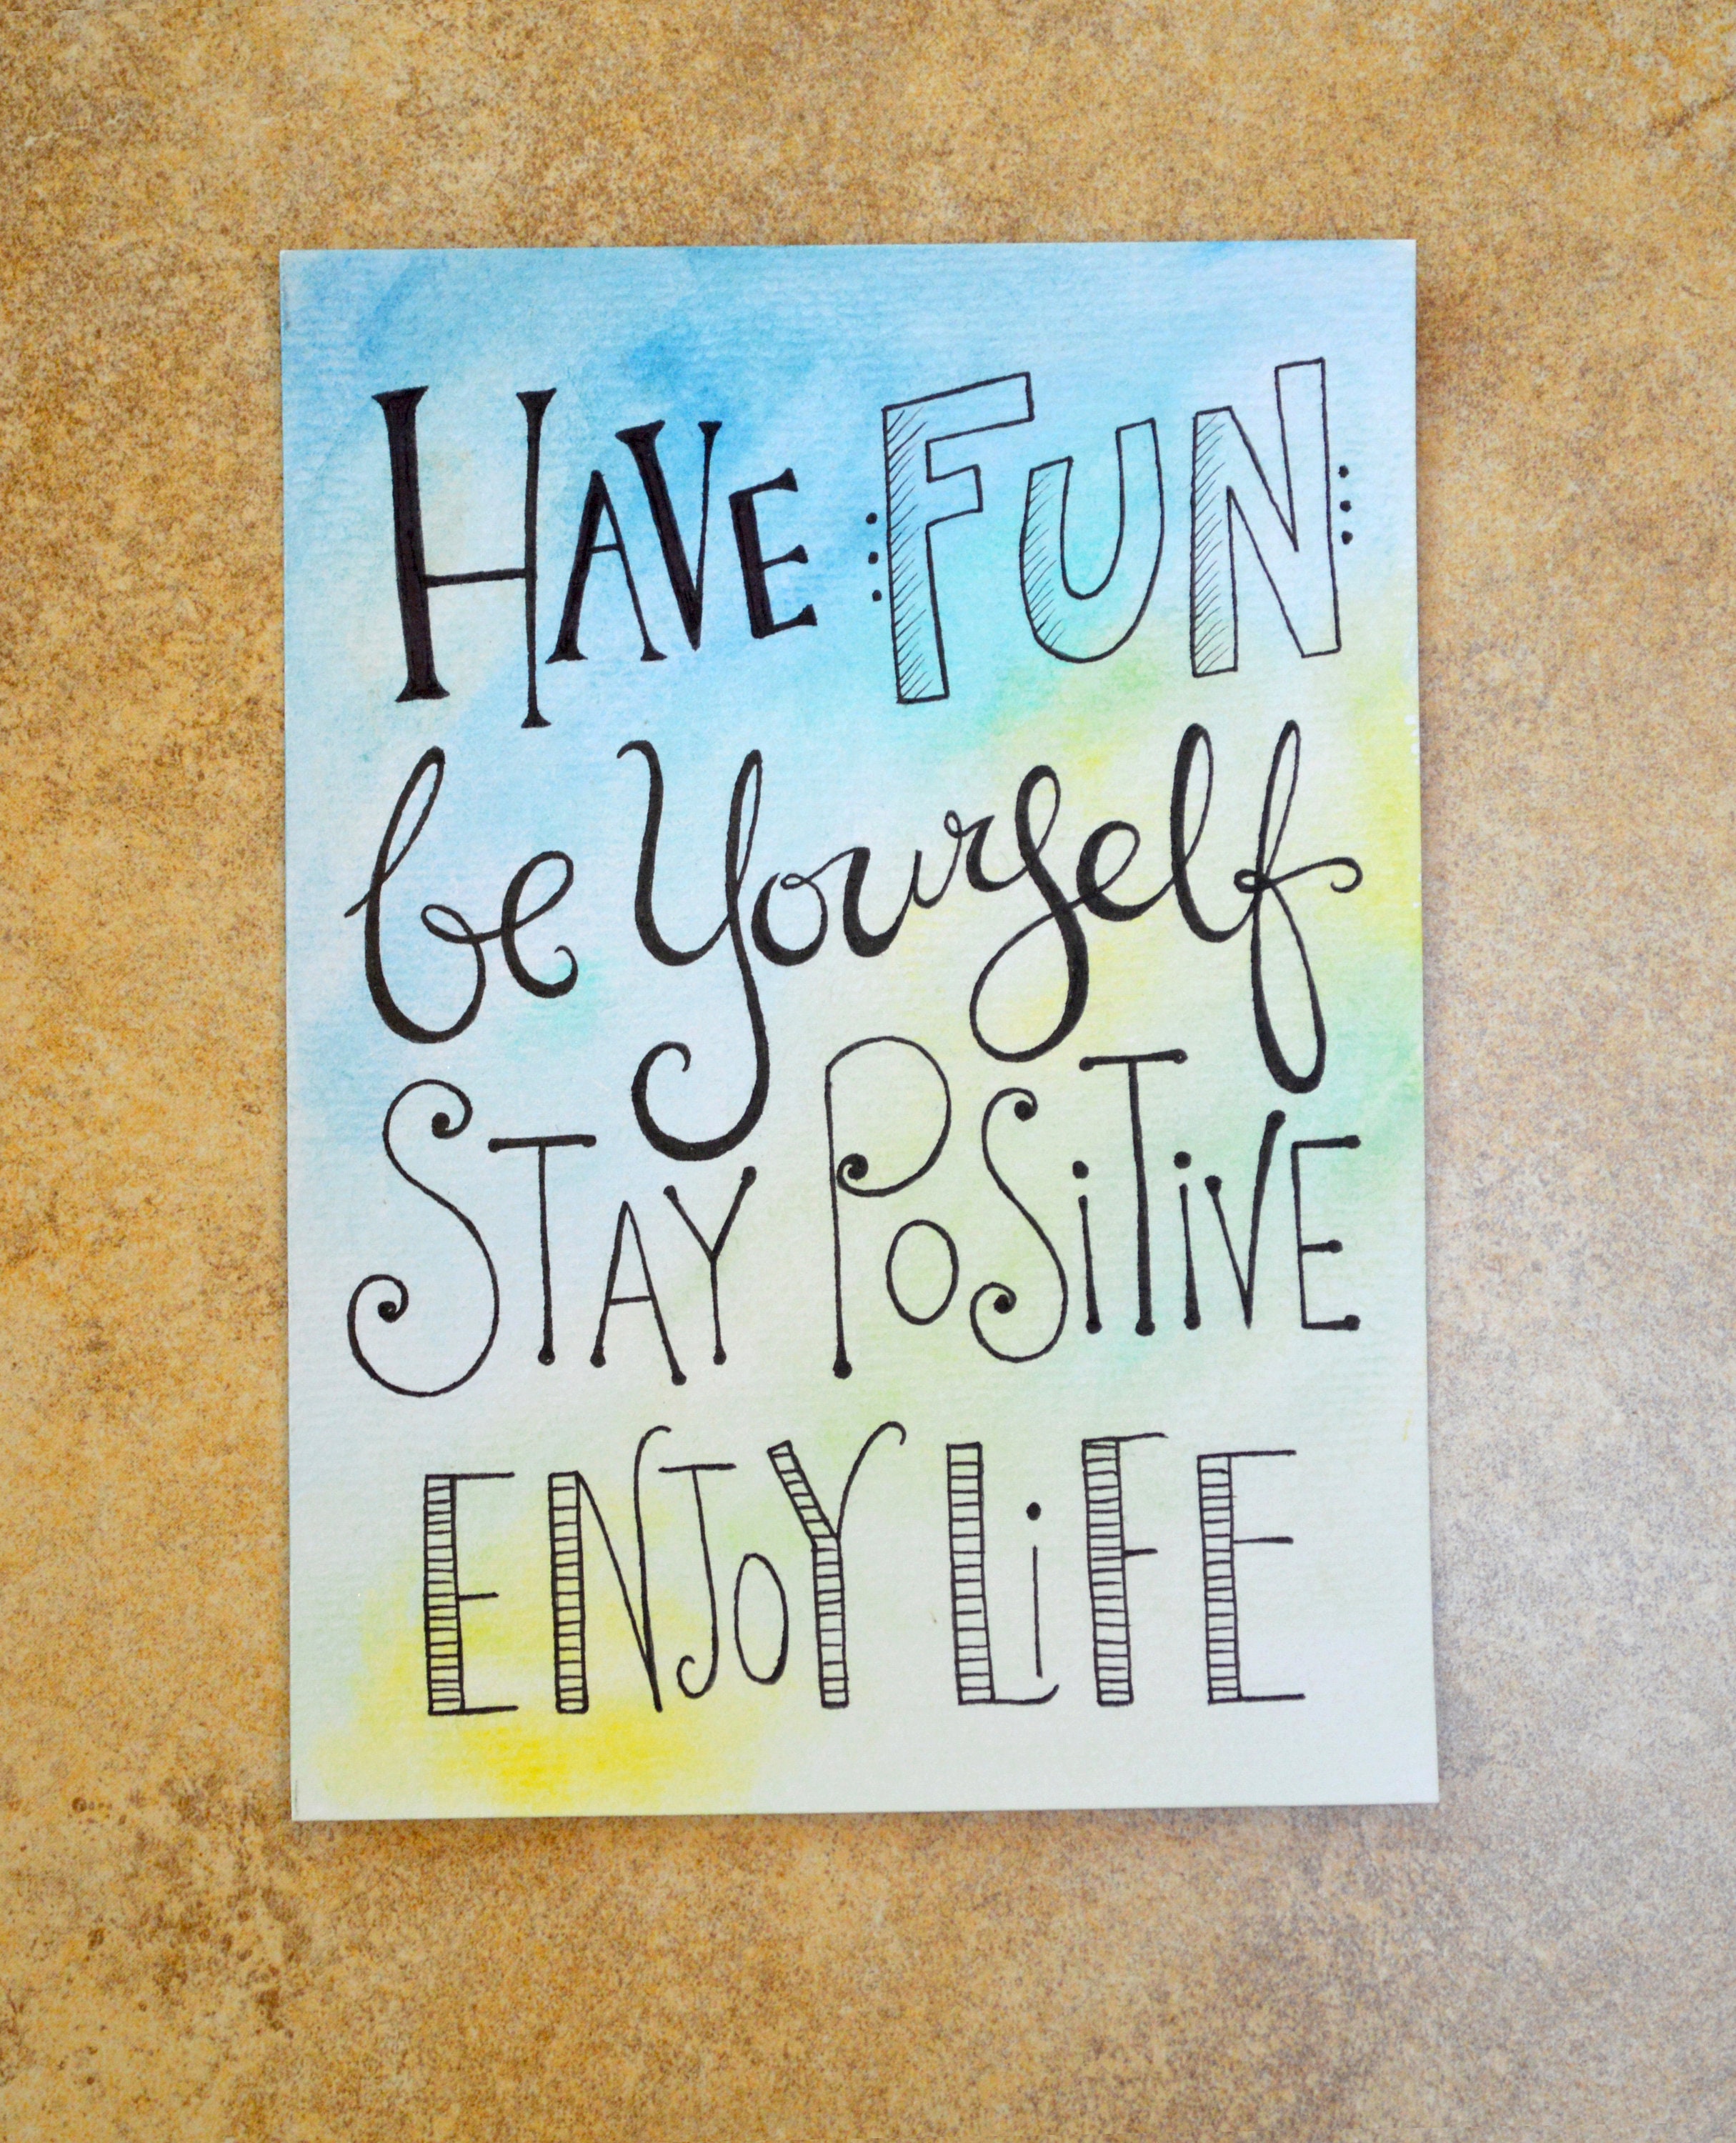 HAVE FUN
be Yourself
STAY POSiTiVE
ENJOY LiFE